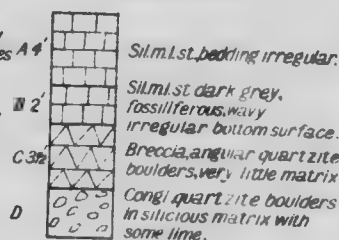 es A 4' Sil.m.l.st, bedding irregular.
B 2' Sil.m.l.st dark grey,
fossiliferous, wavy
irregular bottom surface.
C 3½' Breccia, angular quartzite
boulders, very little matrix
D Congl quartzite boulders
in silicious matrix with
some lime.